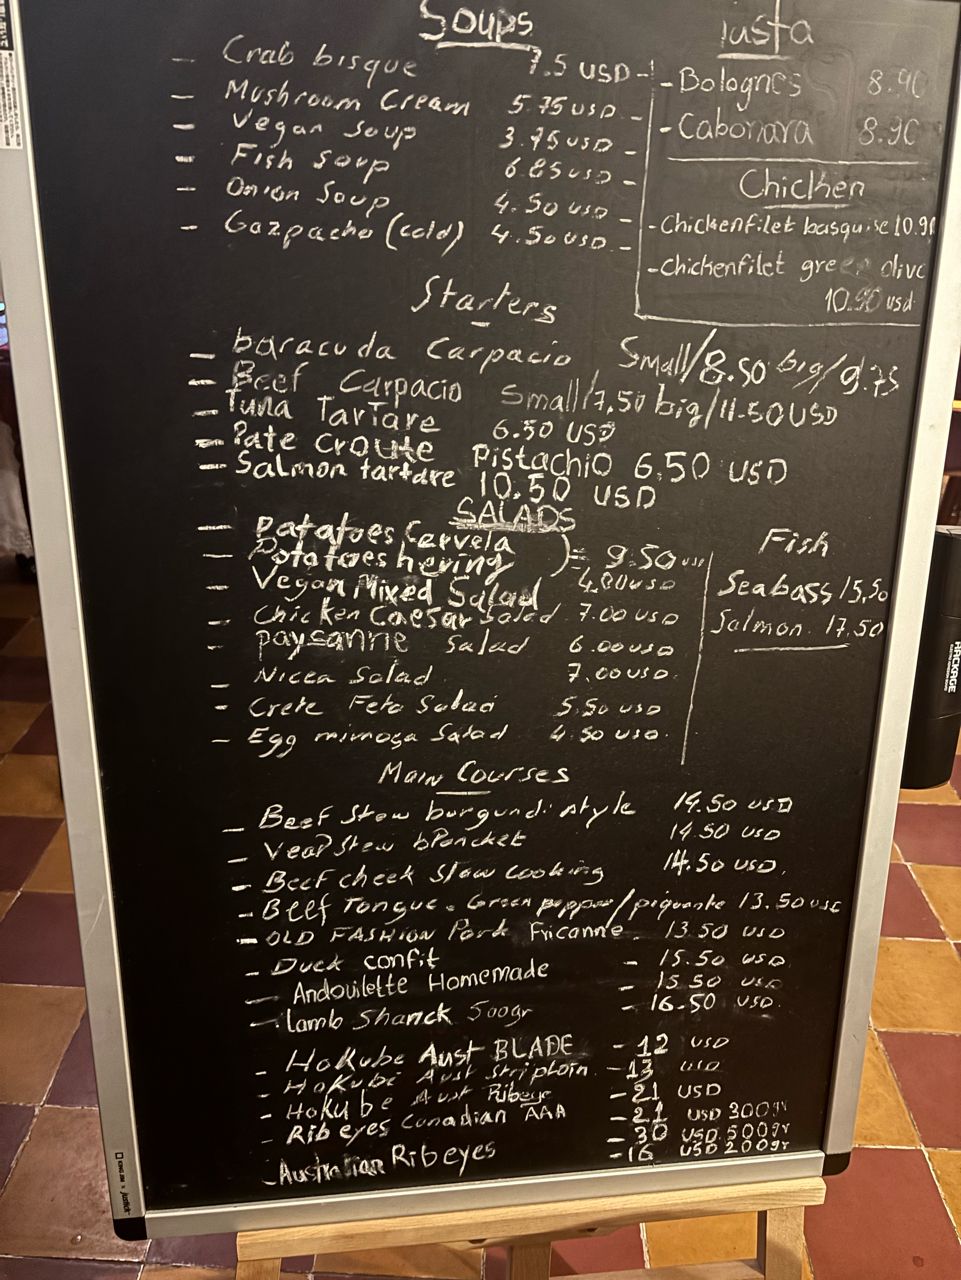 Soups
- Crab bisque 7.5 USD -
- Mushroom Cream 5.75 USD -
- Vegan Soup 3.75 USD -
- Fish Soup 6.85 USD -
- Onion Soup 4.50 USD -
- Gazpacho (cold) 4.50 USD -
- Bolognes 8.90
- Cabonara 8.90
Chicken
- Chickenfilet basquise 10.90
- Chickenfilet green olive
10.90 usd
Starters
- baracuda Carpacio Small/8.50 big/9.75
- Beef Carpacio Small/7,50 big/11.50 USD
- Tuna TarTare 6.50 USD
- Pate croute Pistachio 6.50 USD
- Salmon tartare 10.50 USD
SALADS
- Patatoes Cervela
- Potatoes hering ) = 9.50 usd
- Vegan Mixed Salad 4.00 USD
- Chicken Caesar Salad 7.00 USD
- paysanne Salad 6.00 USD
- Nicea Salad 7.00 USD
- Crete Feta Salad 5.50 USD
- Egg mimosa Salad 4.50 USD
Fish
Seabass 15,50
Salmon 17.50
Main Courses
- Beef Stew burgundi style 14.50 USD
- Veal Stew blancket 14.50 USD
- Beef cheek Slow cooking 14.50 USD
- Beef Tongue. Green pepper/piquante 13.50 USD
- OLD FASHION Pork Fricanne. 13.50 USD
- Duck confit - 15.50 USD
- Andouilette Homemade - 15.50 USD
- lamb Shanck 500gr - 16.50 USD
- HoKube Aust BLADE - 12 USD
- HoKube Aust Striploin - 13 USD
- HoKube Aust Ribeye - 21 USD
- Rib eyes Canadian AAA - 21 USD 300gr
- 30 USD 500gr
- Australian Ribeyes - 16 USD 200gr